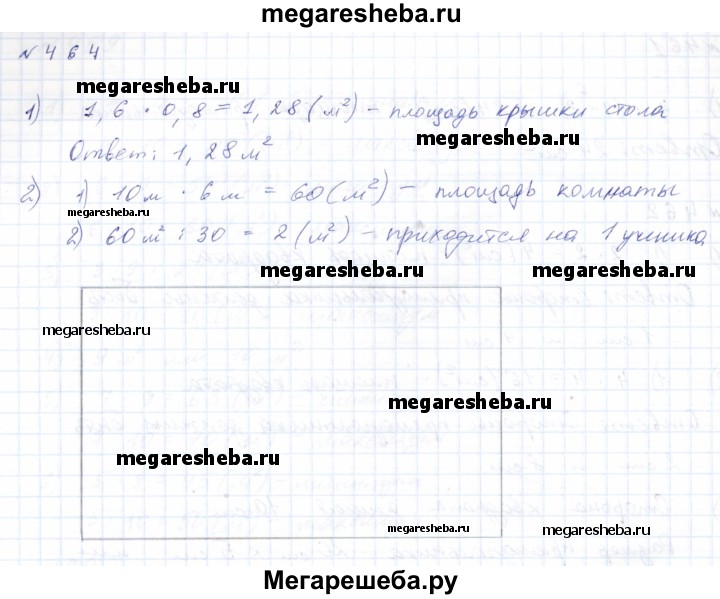 megaresheba.ru
№ 464
megaresheba.ru
1) 1,6 · 0,8 = 1,28 (м²) – площадь крышки стола
megaresheba.ru
Ответ: 1,28 м²
2) 1) 10 м · 6 м = 60 (м²) – площадь комнаты
megaresheba.ru
2) 60 м² : 30 = 2 (м²) – приходится на 1 ученика
megaresheba.ru megaresheba.ru
megaresheba.ru
megaresheba.ru
megaresheba.ru
megaresheba.ru megaresheba.ru
Мегарешеба.ру